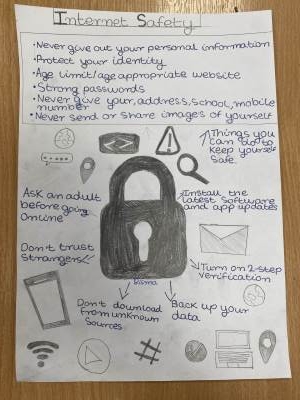 Internet Safety
• Never give out your personal information
• Protect your identity
• Age limit/age appropriate website
• Strong passwords
• Never give your, address, school, mobile
number
• Never send or share images of yourself
Things you
can do to
keep yourself
safe.
Ask an adult
before going
Online
Install the
latest Software
and app updates
Don't trust
strangers!!
Turn on 2-step
verification
Don't download
from unknown
Sources
Back up your
data
#